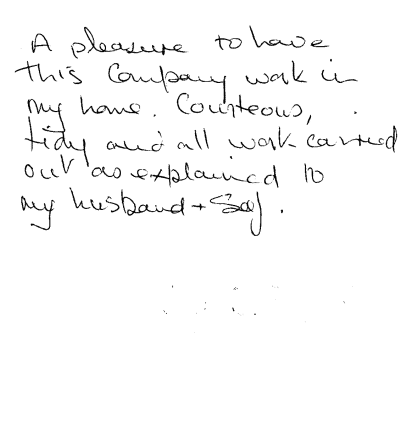 A pleasure to have
this Company work in
my home. Courteous,
tidy and all work carried
out as explained to
my husband + Self.